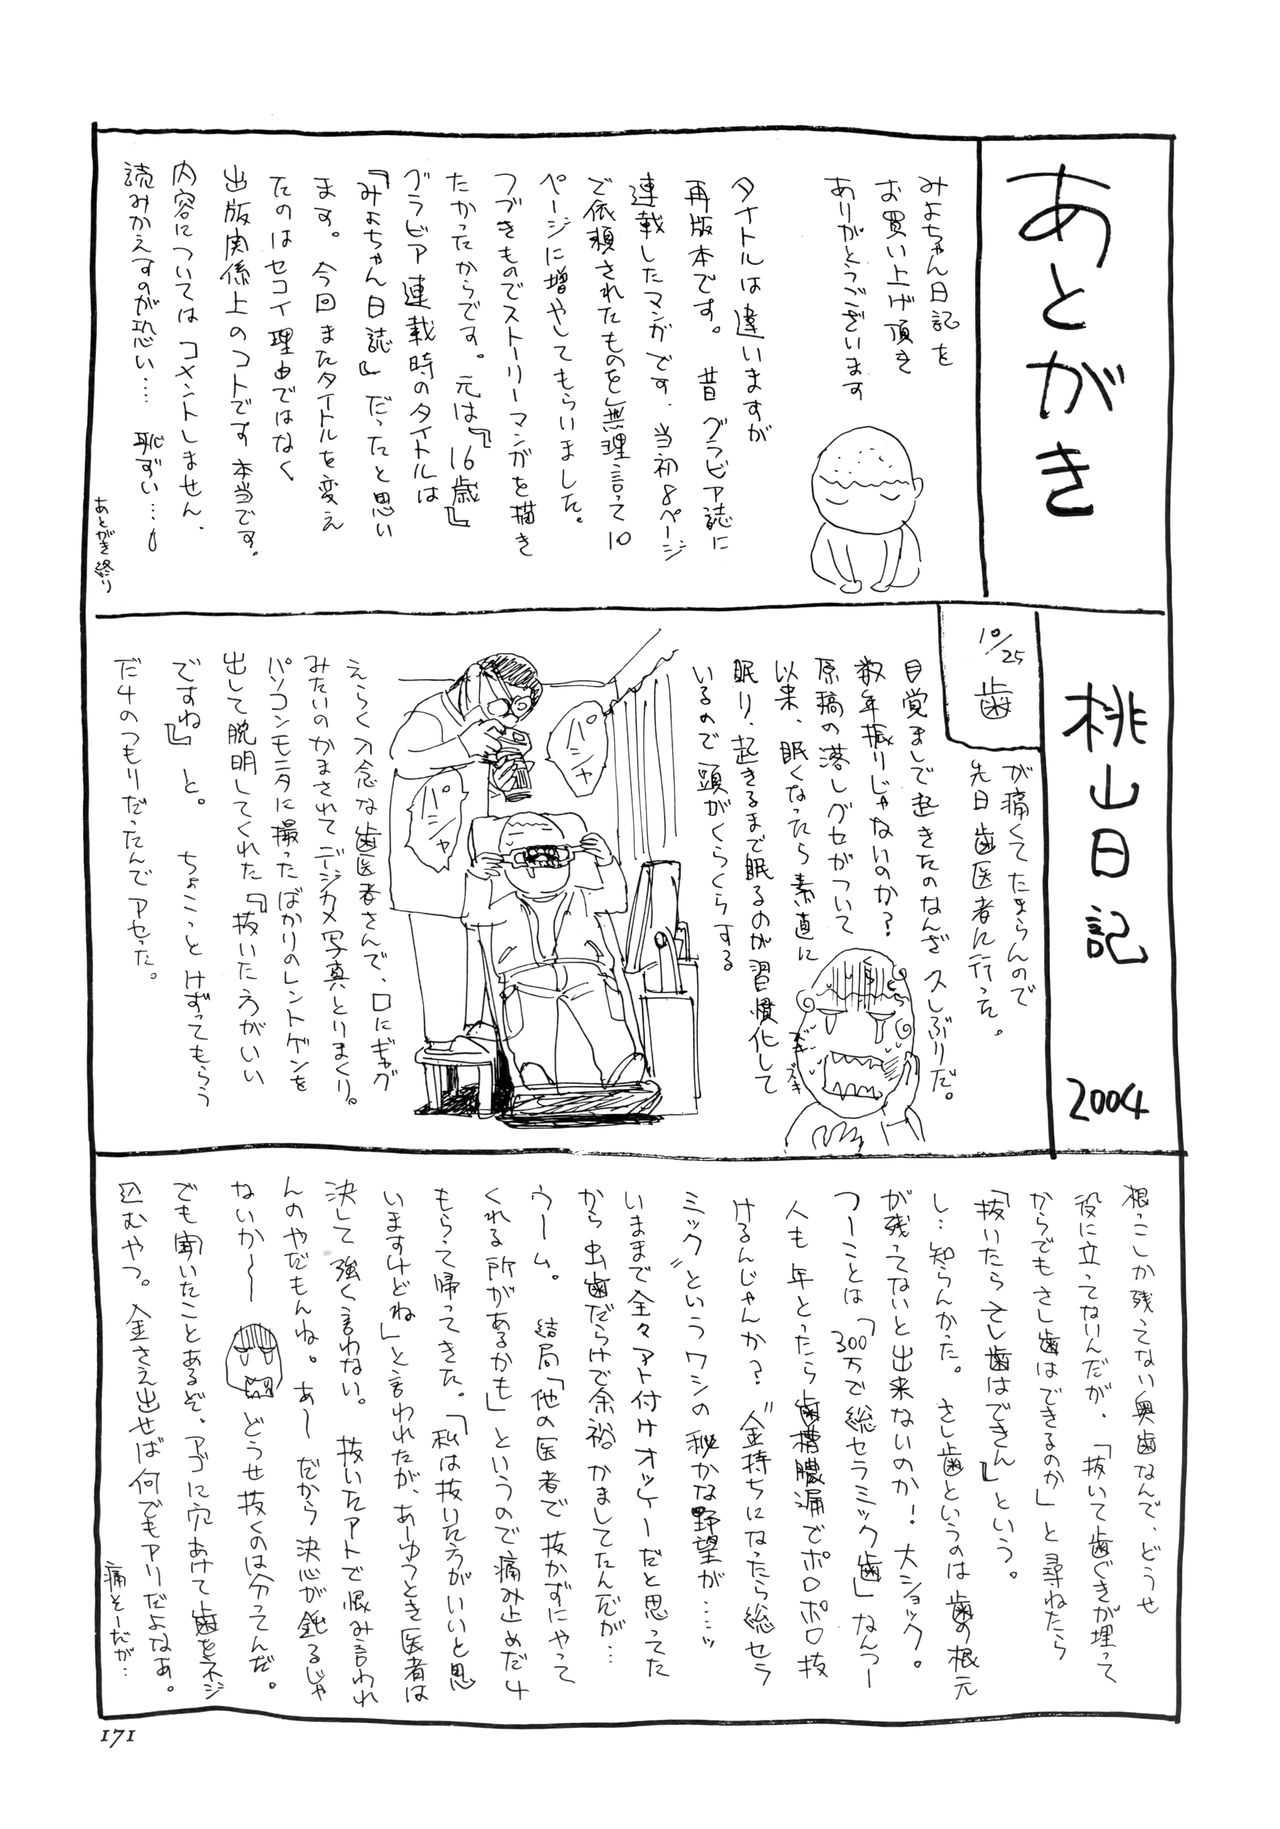 あとがき
みよちゃん日記を
お買い上げ頂き
ありがとうございます
タイトルは違いますが
再版本です。昔グラビア誌に
連載したマンガです、当初8ページ
で依頼されたものを無理言って10
ページに増やしてもらいました。
つづきものでストーリーマンガを描き
たかったからです。元は『16歳』
グラビア連載時のタイトルは
『みよちゃん日誌』だったと思い
ます。今回またタイトルを変え
たのはセコイ理由ではなく
出版関係上のコトです本当です。
内容についてはコメントしません、
読みかえすのが恐い…恥ずい…
あとがき終り
桃山日記 2004
10/25
歯
が痛くてたまらんので
先日歯医者に行った。
目覚ましで起きたのなんざ久しぶりだ。
数年振りじゃないのか?
原稿の落しグセがついて
以来、眠くなったら素直に
眠り、起きるまで眠るのが習慣化して
いるので頭がくらくらする
ズキズキ
パシャ
パシャ
えらく入念な歯医者さんで、口にギャグ
みたいのかまされてデジカメ写真とりまくり。
パソコンモニタに撮ったばかりのレントゲンを
出して説明してくれた『抜いた方がいい
ですね』と。ちょこっとけずってもらう
だ4のつもりだったんでアセった。
根っこしか残ってない奥歯なんで、どうせ
役に立てないんだが、「抜いて歯ぐきが埋って
からでもさし歯はできるのか」と尋ねたら
「抜いたらさし歯はできん」という。
し…知らんかった。さし歯というのは歯の根元
が残ってないと出来ないのか!大ショック。
つーことは「300万で総セラミック歯」なんつー
人も年とったら歯槽膿漏でポロポロ抜
けるんじゃんか?"金持ちになったら総セラ
ミック"というワシの秘かな野望が……ッ
いままで全々アト付けオッケーだと思ってた
から虫歯だらけで余裕かましてたんだが…
ウーム。結局「他の医者で抜かずにやって
くれる所があるかも」というので痛み止めだ4
もらって帰ってきた。「私は抜いた方がいいと思
いますけどね」と言われたが、あーゆうとき医者は
決して強く言わない。抜いたアトで恨み言われ
んのやだもんね。あーだから決心が鈍るじゃ
ないか〜〜どうせ抜くのは分ってんだ。
でも聞いたことあるぞ、アゴに穴あけて歯をネジ
込むやつ。金さえ出せば何でもアリだよなあ。
痛そーだが…
171